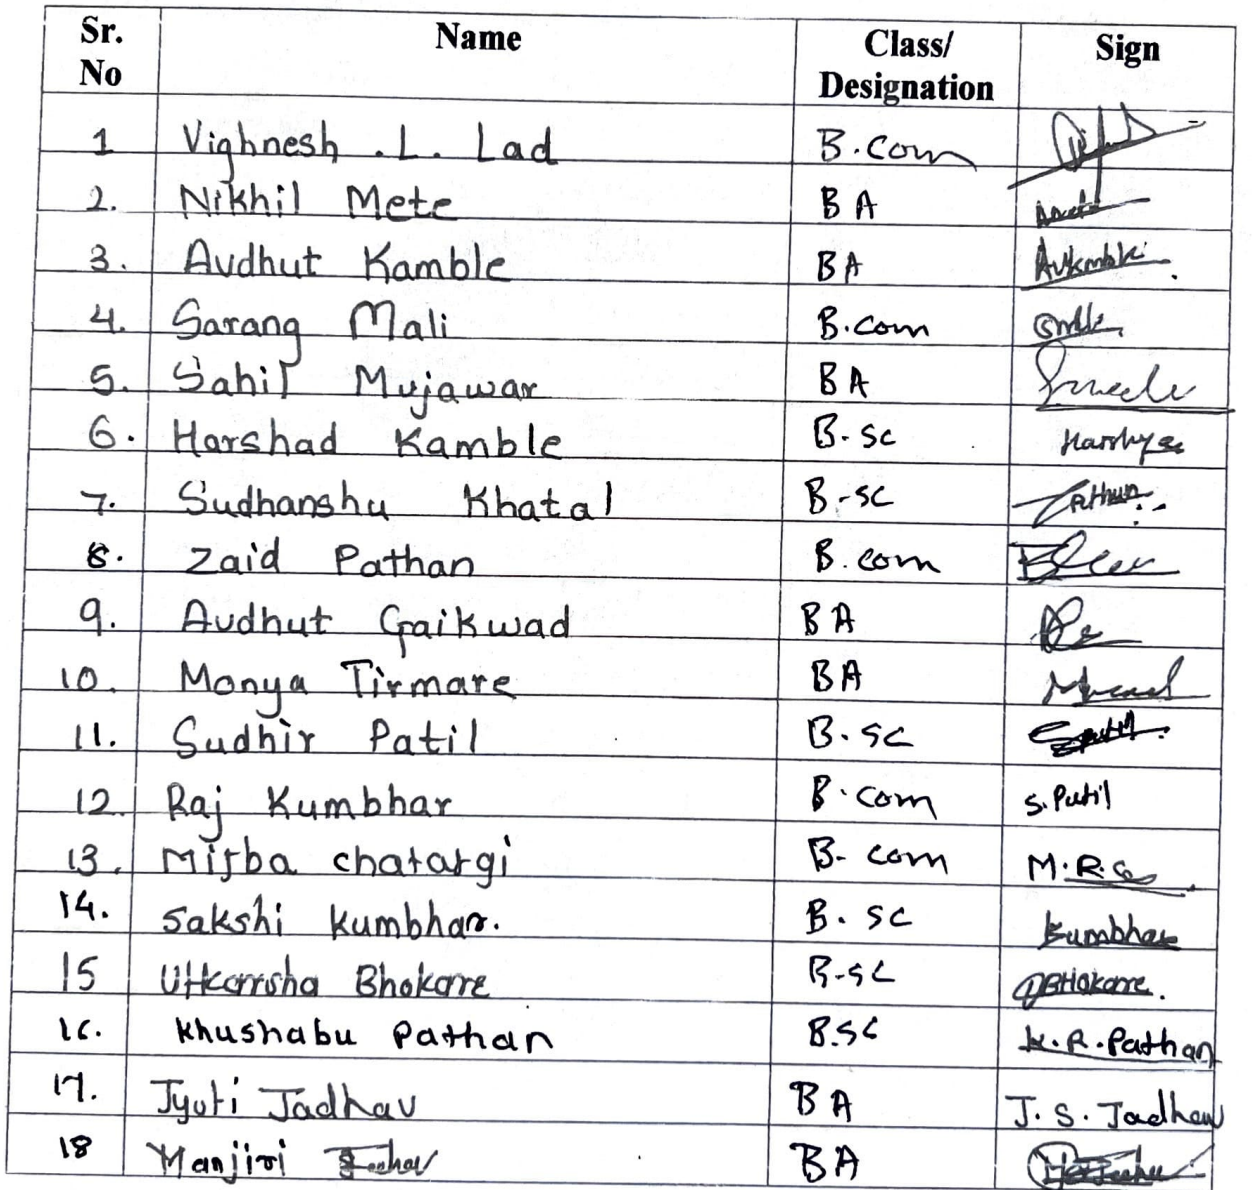 Sr. No Name Class/ Designation Sign
1 Vighnesh .L. Lad B.com
2. Nikhil Mete BA
3. Avdhut Kamble BA
4. Sarang Mali B.com
5. Sahil Mujawar BA
6. Harshad Kamble B-sc
7. Sudhanshu Khatal B-sc
8. Zaid Pathan B.com
9. Avdhut Gaikwad BA
10. Monya Tirmare BA
11. Sudhir Patil B.sc
12. Raj Kumbhar B.com S.Patil
13. Misba chatargi B-com M.R.
14. Sakshi Kumbhar. B.sc Kumbhar
15 Utkarsha Bhokare B-sc Bhokare.
16. Khushabu Pathan B.sc K.R.Pathan
17. Jyoti Jadhav BA J.S.Jadhav
18 Manjiri BA